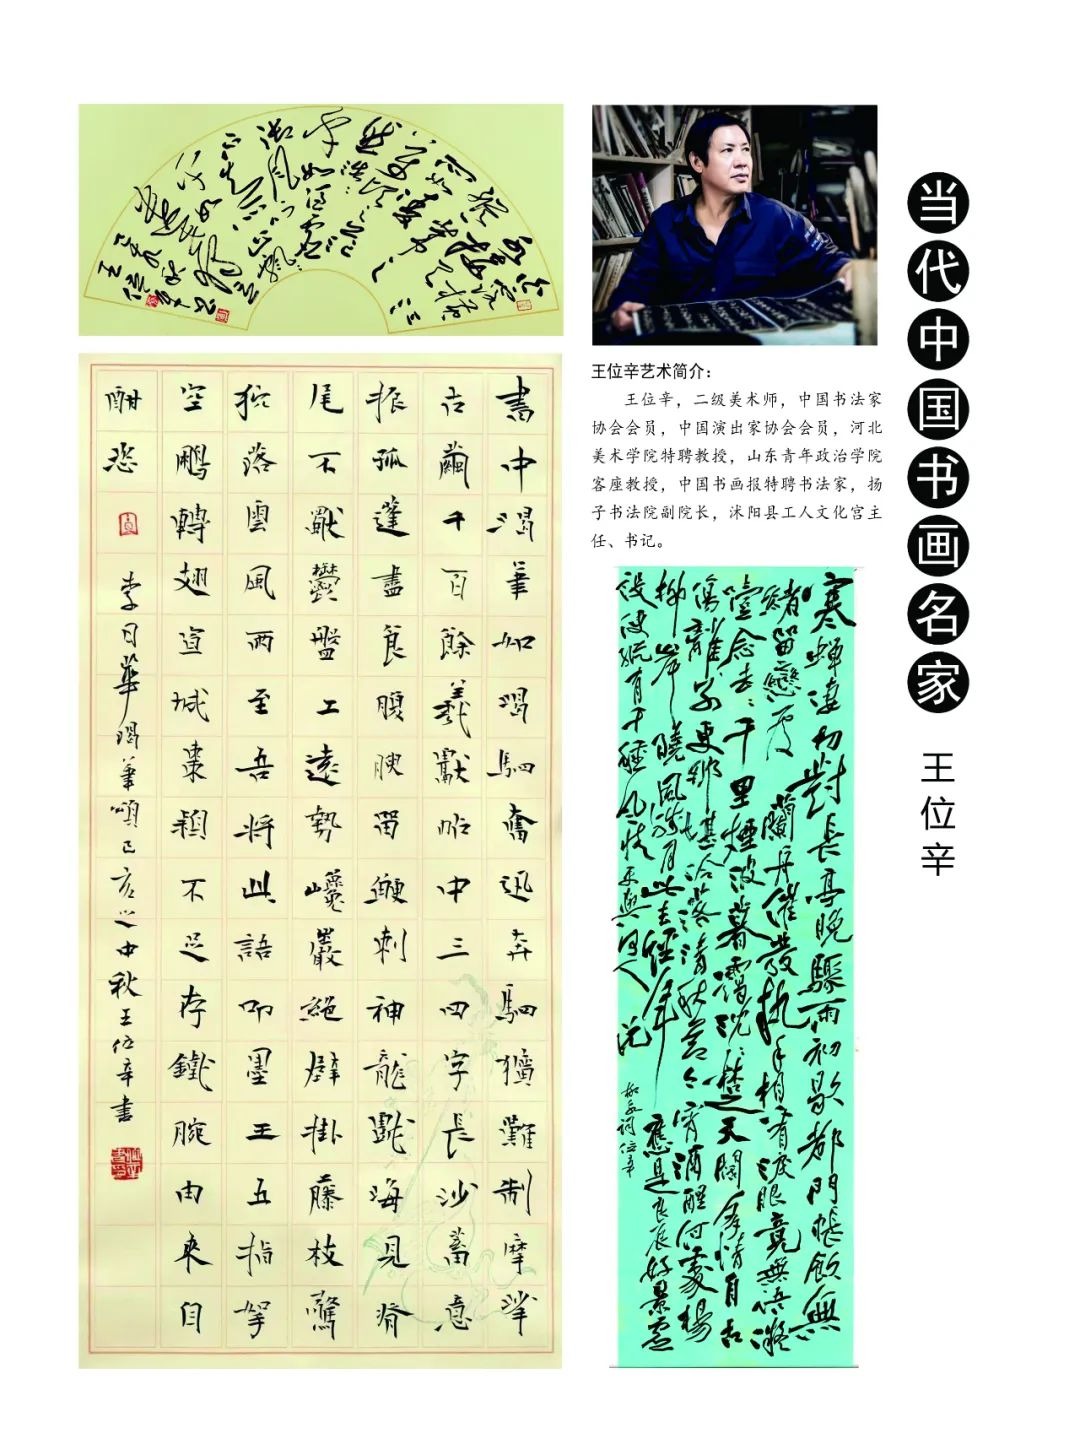 当代中国书画名家
王位辛
王位辛艺术简介：
王位辛，二级美术师，中国书法家
协会会员，中国演出家协会会员，河北
美术学院特聘教授，山东青年政治学院
客座教授，中国书画报特聘书法家，扬
子书法院副院长，沭阳县工人文化宫主
任、书记。
書中渴筆如渴驷奮迅奔驷獷難制摩挲
古繭千百餘羲獻帖中三四字長沙蓄意
振孤蓬盡食腹腴留鯁刺神龍戲海見脊
尾不獸鬱盤工遠勢巉巖絕壁掛藤枝驚
狖落雲風雨至吾將此語叩墨王五指拏
空鵬轉翅宣城棗穎不足存鐵腕由來自
酣恣
李日華渴筆頌己亥之中秋王位辛書
寒蟬凄切對長亭晚驟雨初歇都門帳飲無
緒留戀處蘭舟催發執手相看淚眼竟無語凝
噎念去去千里煙波暮靄沈沈楚天闊多情自古
傷離別更那堪冷落清秋節今宵酒醒何處楊
柳岸曉風殘月此去經年應是良辰好景虛
設便縱有千種風情更與何人說
柳永詞位辛